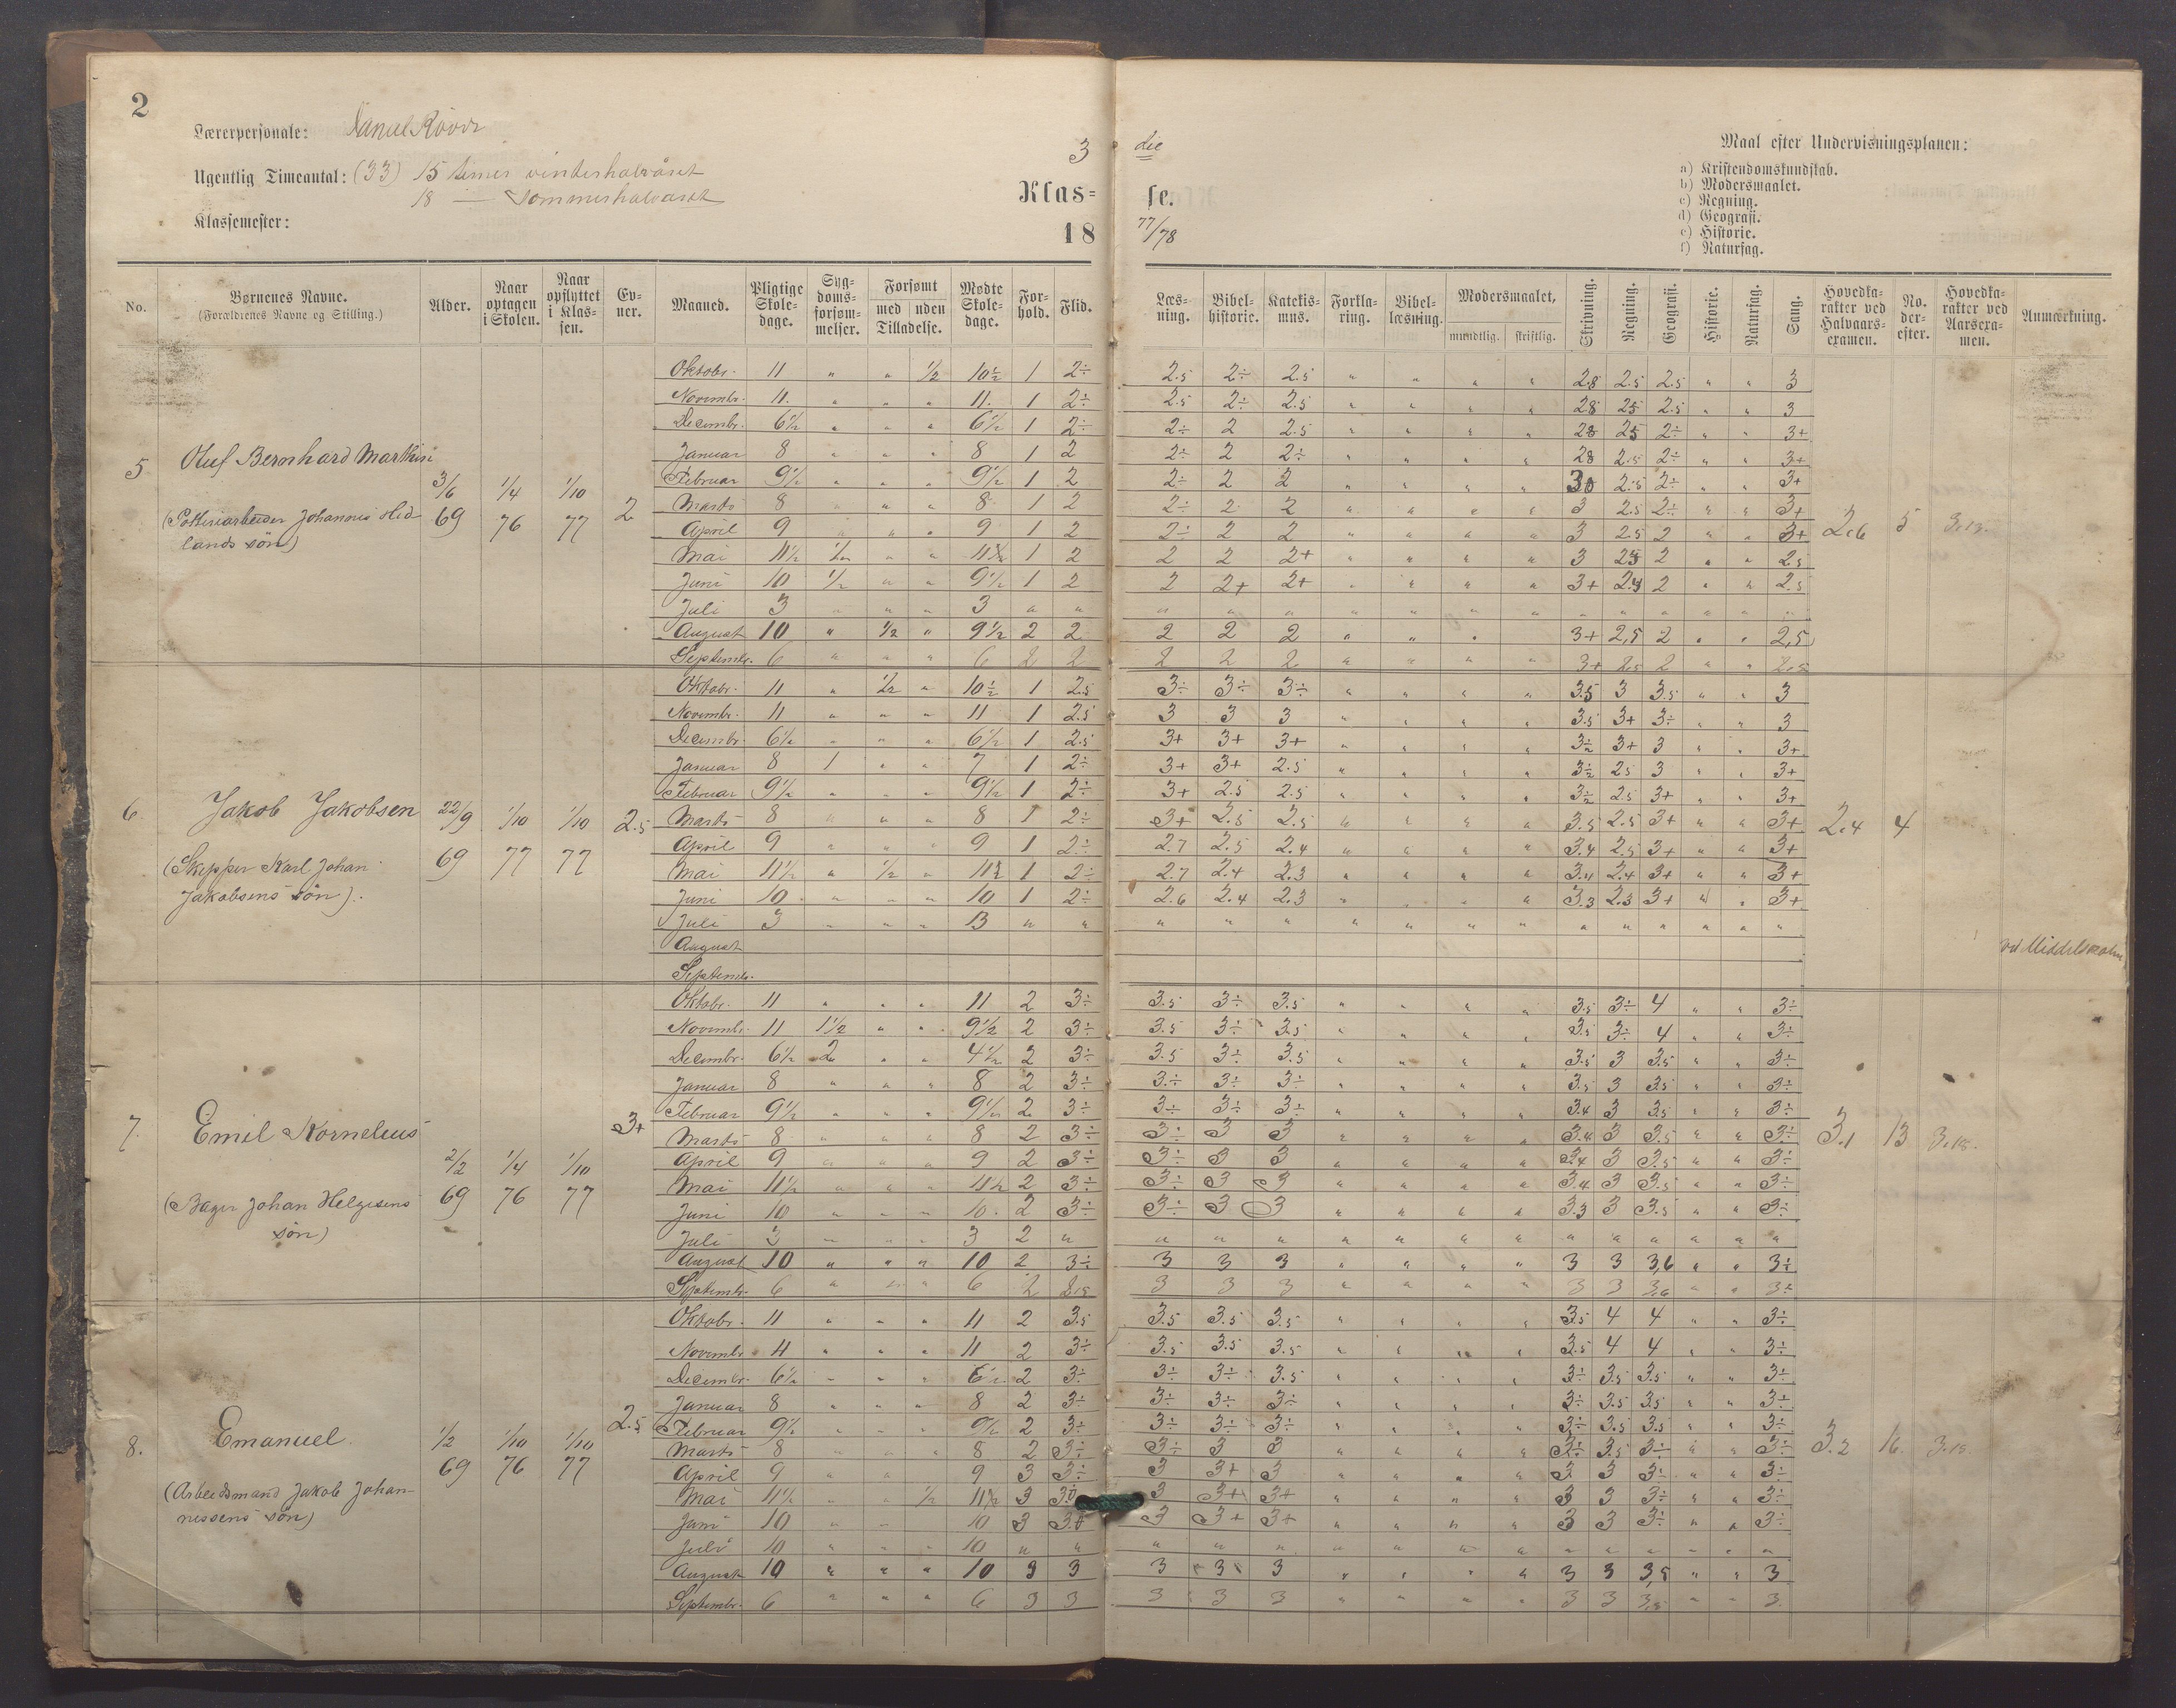 2
Lærerpersonale:
Ugentlig Timeantal: (33) 15 timer vinterhalvåret
18 — Sommerhalvåret
Klassemester:
3 die
Klas= se.
18 77/78
Maal efter Undervisningsplanen:
a) Kristendomskundskab.
b) Modersmaalet.
c) Regning.
d) Geografi.
e) Historie.
f) Naturfag.
No. Børnenes Navne. (Forældrenes Navne og Stilling.) Alder. Naar optagen i Skolen. Naar opflyttet i Klassen. Evner. Maaned. Pligtige Skoledage. Sygdomsforsømmelser. Forsømt med uden Tilladelse. Mødte Skoledage. Forhold. Flid. Læsning. Bibelhistorie. Katekismus. Forklaring. Bibellæsning. Modersmaalet, mundtlig. skriftlig. Skrivning. Regning. Geografi. Historie. Naturfag. Sang. Hovedkarakter ved Halvaarsexamen. No. derefter. Hovedkarakter ved Aarsexamen. Anmærkning.
5 Oluf Bernhard
(Johannes Hidlands søn)
3/6 69 1/4 76 1/10 77 2
Oktobr. 11 " " 1/2 10 1/2 1 2÷ 2.5 2÷ 2.5 " " " " 2.8 2.5 2.5 " " 3
Novembr. 11. " " " 11. 1 2÷ 2.5 2÷ 2.5 " " " " 2.8 2.5 2.5 " " 3
Decembr. 6 1/2 " " " 6 1/2 1 2÷ 2÷ 2 2.5 " " " " 2.8 2.5 2÷ " " 3+
Januar 8 " " " 8 1 2 2÷ 2 2÷ " " " " 2.8 2.5 2÷ " " 3+
Februar 9 1/2 " " " 9 1/2 1 2 2÷ 2 2 " " " " 2.5 2÷ " " 3+
Marts 8 " " " 8 1 2 2÷ 2 2 " " " " 3 2.5 2÷ " " 3+
April 9 " " " 9 1 2 2÷ 2 2 " " " " 3 2.5 2 " " 3+ 2.6 5
Mai 11 1/2 1/2 " " 1 2 2 2 2+ " " " " 3 2.5 2 " " 2.5
Juni 10 1/2 " " 9 1/2 1 2 2 2+ 2+ " " " " 3+ 2.4 2 " " 2.5
Juli 3 " " " 3 " " " " " " " " " " " " " " "
August 10 " 1/2 " 9 1/2 2 2 2 2 2 " " " 3+ 2,5 2 " " 2,5
Septembr. 6 " " " 6 2 2 2 2 2 " " " " 3+ 2.5 2 " " 2.5
6 Jakob Jakobsen
(Skipper Karl Johan
Jakobsens søn).
22/9 69 1/10 77 1/10 77 2.5
Oktobr. 11 " 1/2 " 10 1/2 1 2.5 3÷ 3÷ 3÷ " " " " 3.5 3 3.5 " " 3
Novembr. 11 " " " 11 1 2.5 3 3 3 " " " " 3.5 3+ 3÷ " " 3
Decembr. 6 1/2 " " " 6 1/2 1 2.5 3+ 3+ 3+ " " " " 3÷ 3+ 3 " " 3+
Januar 8 1 " " 7 1 2÷ 3+ 3+ 2.5 " " " " 3÷ 2.5 3 " " 3+
Februar 9 1/2 " " " 9 1/2 1 2÷ 3+ 2.5 2.5 " " " " 3÷ 2.5 3+ " " 3+
Marts 8 " " " 8 1 2÷ 3+ 2.5 2.5 " " " " 3.5 2.5 3+ " " 3+ 2.4 4
April 9 " " " 9 1 2÷ 2.7 2.5 2.4 " " " " 3.4 2.5 3+ " " 3+
Mai 11 1/2 " 1/2 " 1 2÷ 2.7 2.4 2.3 " " " " 3.4 2.4 3+ " " 3+
Juni 10 " " " 10 1 2÷ 2.6 2.4 2.3 " " " " 3.3 2.3 3+ " " 3+
Juli 3 " " " " " " " " " " " " " " " " " "
August
Septembr.
7. Emil Kornelius
(Bager Johan Helgesens
søn)
2/2 69 1/4 76 1/10 77 3+
Oktobr. 11 " " " 11 2 3÷ 3.5 3÷ 3.5 " " " " 3.5 3÷ 4 " " 3÷
Novembr. 11 1 1/2 " " 9 1/2 2 3÷ 3.5 3÷ 3.5 " " " " 3.5 3÷ 4 " " 3÷
Decembr. 6 1/2 2 " " 4 1/2 2 3÷ 3.5 3÷ 3.5 " " " " 3.5 3 3.5 " " 3÷
Januar 8 " " " 8 2 3÷ 3÷ 3÷ 3÷ " " " " 3.5 3 3.5 " " 3÷
Februar 9 1/2 " " " 9 1/2 2 3÷ 3÷ 3÷ 3÷ " " " " 3.4 3 3.5 " " 3÷
Marts 8 " " " 8 2 3÷ 3÷ 3 3 " " " " 3.4 3 3.5 " " 3÷ 3.1 13
April 9 " " " 9 2 3÷ 3÷ 3 3 " " " " 3.4 3 3.5 " " 3÷
Mai 11 1/2 " " " 11 1/2 2 3÷ 3÷ 3 3 " " " " 3.4 3 3.5 " " 3÷
Juni 10 " " " 10. 2 3÷ 3÷ 3 3 " " " " 3.3 3 3.5 " " 3÷
Juli 3 " " " 3 2 " " " " " " " " " " " " " "
August 10 " " " 10 2 3÷ 3 3 3 " " " " 3 3 3,6 " " 3÷
Septembr. 6 " " " 6 2 3 3 3 " " " " 3 3 3,6 " " 3÷
8. Emanuel
(Arbeidsmand Jakob Johan-
nessens søn)
1/2 69 1/10 76 1/10 77 2.5
Oktobr. 11 " " " 11 2 3.5 3.5 3.5 3.5 " " " " 3.5 4 4 " " 3÷
Novembr. 11 " " " 11 2 3÷ 3.5 3.5 3.5 " " " " 3.5 4 4 " " 3÷
Decembr. 6 1/2 " " " 6 1/2 2 3÷ 3÷ 3÷ 3.5 " " " " 3÷ 3.5 3.5 " " 3÷
Januar 8 " " " 8 2 3÷ 3÷ 3÷ 3÷ " " " " 3÷ 3.5 3.5 " " 3÷
Februar 9 1/2 " " " 9 1/2 2 3÷ 3÷ 3÷ 3÷ " " " " 3÷ 3.5 3.5 " " 3÷
Marts 8 " " " 8 2 3÷ 3÷ 3 3 " " " " 3÷ 3.5 3÷ " " 3÷ 3.2 16
April 9 " " 9 3 3÷ 3 3+ 3 " " " " 3 3 3÷ " " 3÷
Mai 11 1/2 " " 1/2 3 3 3+ 3+ " " " " 3 3 3÷ " " 3÷
Juni 10 " " 10 3 3 3+ 3+ " " " " 3 3 3÷ " " 3÷
Juli 10 " " " 10 " " " " " " " " " " " " " " "
August 10 " " " 10 3 3 3 3 3 " " " " 3 3 3,5 " " 3
Septembr. 6 " " " 6 3 3 3 3 3 " " " " 3 3 3,5 " " 3